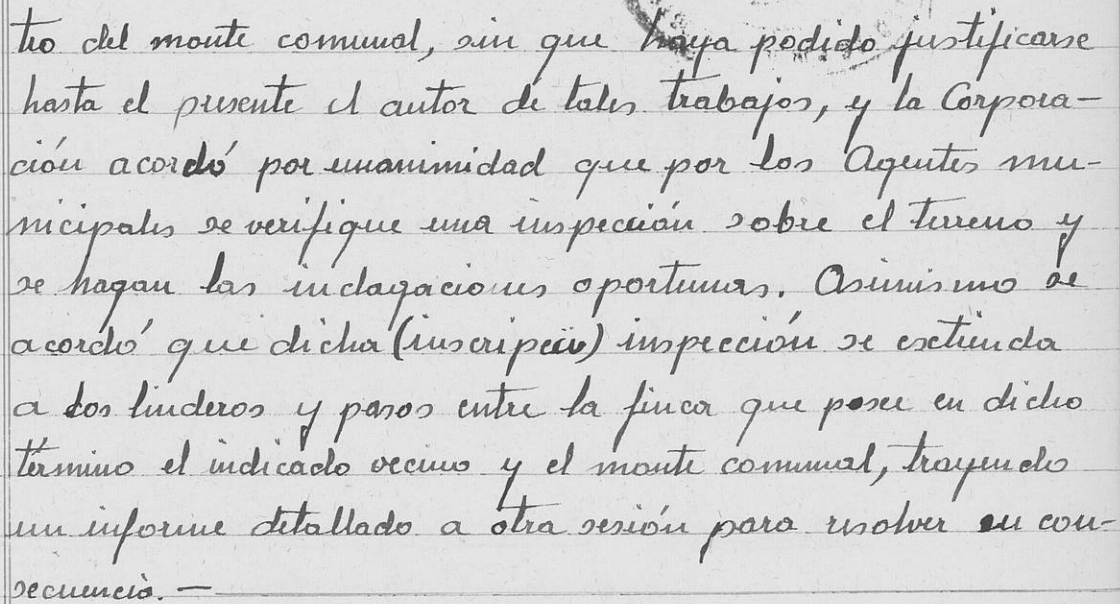 tro del monte comunal, sin que haya podido justificarse
hasta el presente el autor de tales trabajos, y la Corpora-
ción acordó por unanimidad que por los Agentes mu-
nicipales se verifique una inspección sobre el terreno y
se hagan las indagaciones oportunas. Asimismo se
acordó que dicha (inscripción) inspección se extienda
a los linderos y pasos entre la finca que posee en dicho
término el indicado vecino y el monte comunal, trayendo
un informe detallado a otra sesión para resolver en con-
secuencia. —